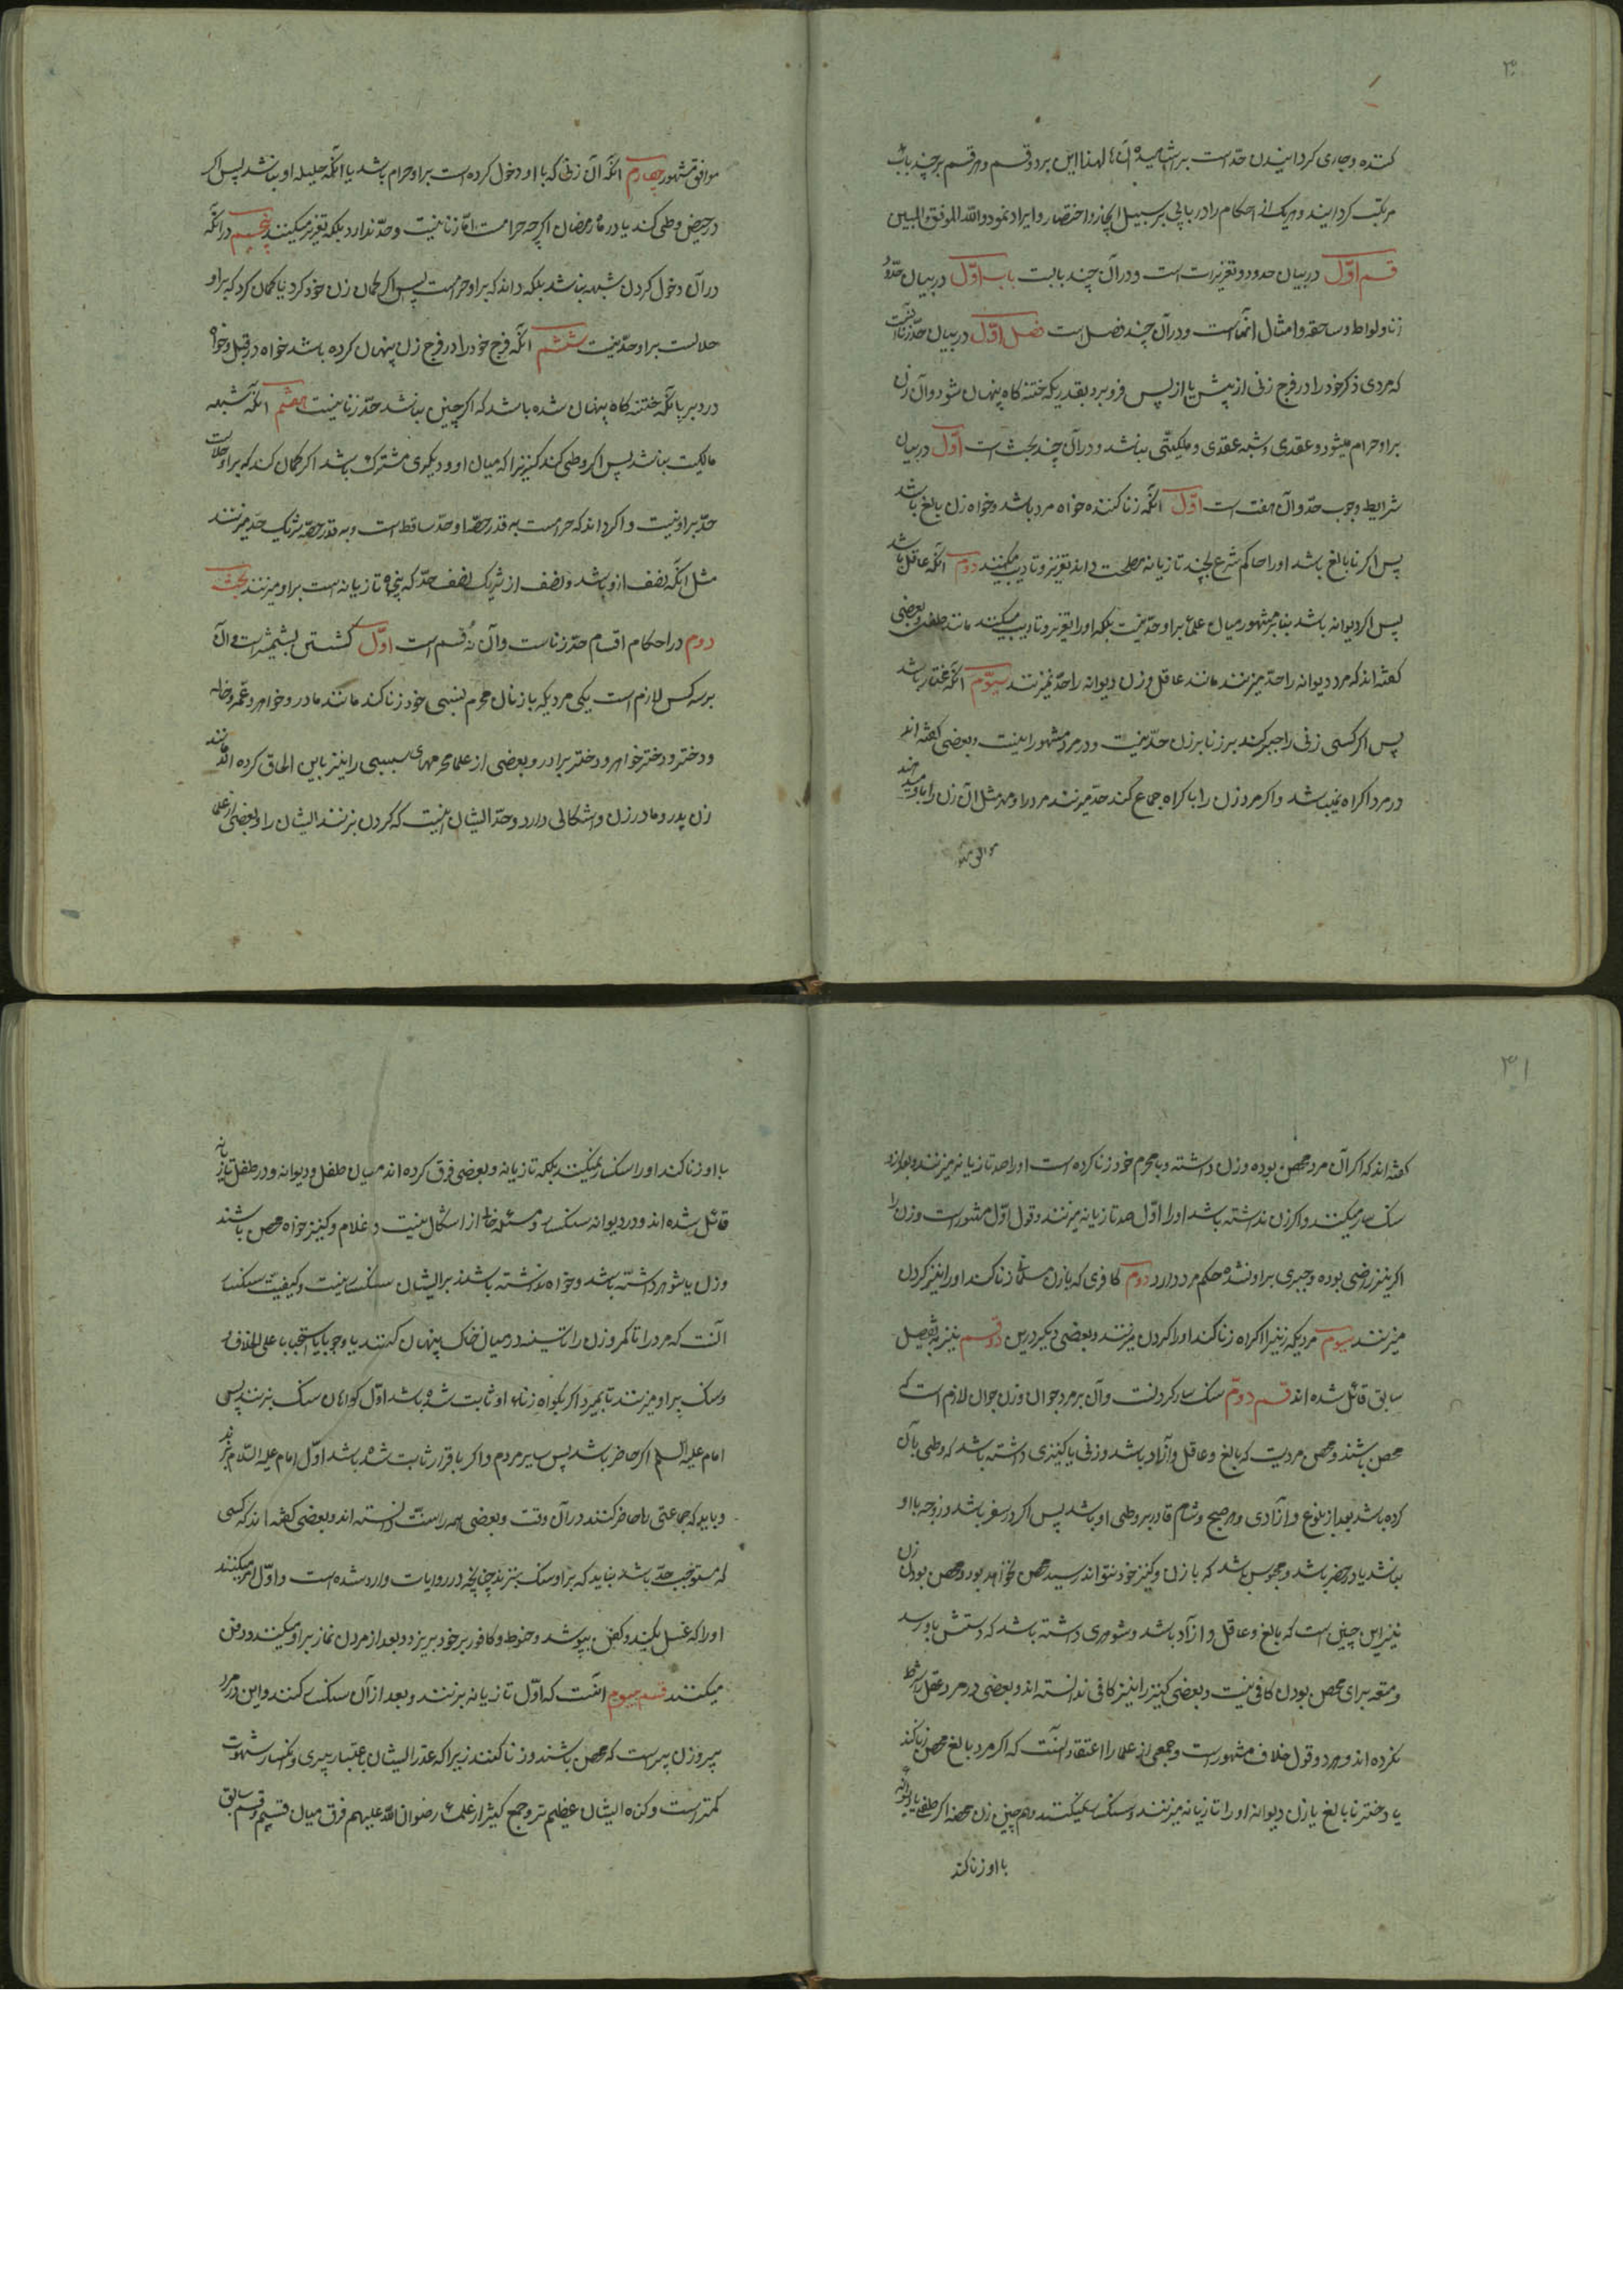 ۴۰
کننده و جاری کردانیدن حدّ است بر انجامیده آن لهذا این بر دو قسم و هر قسم بر چند باب
مرتب کردانید و هر یک از احکام را در بابی بر سبیل ایجاز و اختصار و ایراد نمود واللّه الموفق والمبین
قسم اوّل در بیان حدود و تعزیرات است و در آن چند بابت باب اوّل در بیان حدود
زنا و لواط و مساحقه و امثال آنهاست و در آن چند فصل است فصل اوّل در بیان حدّ زنا آنست
که مردی ذکر خود را در فرج زنی از پیش یا از پس فرو برد بقدریکه ختنه کاه پنهان شود و آن زن
بر او حرام میشود و عقدی و شبهه عقدی و ملکیتی نباشد و در آن چند بحث است اوّل در بیان
شرایط وجوب حدّ و آن هفت است اوّل انکه زنا کننده خواه مرد باشد و خواه زن بالغ باشد
پس اکر نابالغ باشد او را حاکم شرع بچند تازیانه مصلحت داند تعزیر و تادیب میکنند دوم انکه عاقل باشد
پس اکر دیوانه باشد بنابر مشهور میان علما بر او حدّ نیست بلکه او را تعزیر و تادیب میکنند مانند طفل و بعضی
کفته اند که مرد دیوانه را حدّ میزنند مانند عاقل و زن دیوانه را حدّ نمیزنند سیوّم انکه مختار باشد
پس اکر کسی زنی را جبر کند بر زنا بر زن حدّ نیست و در مرد مشهور اینست و بعضی کفته اند
در مرد اکراه نمیباشد و اکر مرد زن را باکراه جماع کند حدّ میزنند مرد را و مهر مثل آن زن را باو میدهند
موافق مشهور
موافق مشهور چهارم انکه آن زنی که با او دخول کرده است بر او حرام باشد یا انکه حلیله او نباشد پس اکر
در حیض وطی کند یا در ماه رمضان اکرچه حرامست امّا زنا نیست و حدّ ندارد بلکه تعزیر میکنند پنجم در انکه
در آن دخول کردن شبهه نباشد بلکه داند که بر او حرامست پس اکر کمان زن خود کرد یا کمان کرد که بر او
حلالست بر او حدّ نیست ششم انکه فرج خود را در فرج زن پنهان کرده باشد خواه در قبل و خواه
در دبر بانکه ختنه کاه پنهان شده باشد که اکر چنین نباشد حدّ زنا نیست هفتم انکه شبهه
مالکیت نباشد پس اکر وطی کند کنیزیرا که میان او و دیکری مشترک باشد اکر کمان کند که بر او حلالست
حدّ بر او نیست و اکر داند که حرامست به قدر حصّه او حدّ ساقط است و به قدر حصّه شریک حدّ میزنند
مثل انکه نصف از او باشد و نصف از شریک نصف حدّ که پنجاه تازیانه است بر او میزنند بحث
دوم در احکام اقسام حدّ زناست و آن نُه قسم است اوّل کشتن بشمشیر است و آن
بر سه کس لازم است یکی مردیکه با زنان محرم نسبی خود زنا کند مانند مادر و خواهر و عمّه و خاله
و دختر و دختر خواهر و دختر برادر و بعضی از علما محرمهای سببی را نیز باین الحاق کرده اند مانند
زن پدر و مادر زن و اشکالی دارد و حدّ ایشان اینست که کردن بزنند ایشان را و بعضی از علما
۴۱
کفته اند که اکر آن مرد محصن بوده و زن داشته و با محرم خود زنا کرده است او را صد تازیانه میزنند و بعد از آن
سنکسار میکنند و اکر زن نداشته باشد او را اوّل صد تازیانه میزنند و قول اوّل مشهور است و زن را
اکر نیز راضی بوده و جبری بر او نشده حکم مرد دارد دوم کافری که با زن مسلمان زنا کند او را نیز کردن
میزنند سیوم مردیکه زنیرا اکراه زنا کند او را کردن میزنند و بعضی دیکر در این دو قسم نیز به تفصیل
سابق قائل شده اند قسم دوّم سنکسار کردنست و آن بر مرد جوان و زن جوان لازم است که
محصن باشند و محصن مردیست که بالغ و عاقل و آزاد باشد و زنی یا کنیزی داشته باشد که وطی بآن
کرده باشد بعد از بلوغ و آزادی و هر صبح و شام قادر بر وطی او باشد پس اکر در سفر باشد و زوجه با او
نباشد یا در حضر باشد و محبوس باشد که با زن و کنیز خود نتواند رسید محصن نخواهد بود و محصن بودن زن
نیز این چنین است که بالغ و عاقل و ازاد باشد و شوهری داشته باشد که دستش باو رسد
و متعه برای محصن بودن کافی نیست و بعضی کنیز را نیز کافی ندانسته اند و بعضی در مرد عقل را شرط
نکرده اند و هر دو قول خلاف مشهور است و جمعی از علما را اعتقاد آنست که اکر مرد بالغ محصن زنا کند
با دختر نابالغ یا زن دیوانه او را تازیانه میزنند و سنکسار نمیکنند و هم چنین زن محصنه اکر طفلی یا دیوانه
با او زنا کند
با او زنا کند او را سنکسار نمیکنند بلکه تازیانه و بعضی فرق کرده اند میان طفل و دیوانه و در طفل تازیانه
قائل شده اند و در دیوانه سنکسار و مسئله خالی از اشکال نیست و غلام و کنیز خواه محصن باشند
و زن یا شوهر داشته باشد و خواه نداشته باشند بر ایشان سنکسار نیست و کیفیت سنکسار
آنست که مرد را تا کمر و زن را تا سینه در میان خاک پنهان کنند یا وجوبا یا استحبابا علی الخلاف
و سنک بر او میزنند تا بمیرد اکر بکواه زنای او ثابت شده باشد اوّل کواهان سنک بزنند پس
امام علیه السلام اکر حاضر باشد پس سایر مردم و اکر باقرار ثابت شده باشد اوّل امام علیه السّلام بزند
و باید که جماعتی را حاضر کنند در آن وقت و بعضی همه را سنّت دانسته اند و بعضی کفته اند که کسی
که مستوجب حدّ باشد نباید که بر او سنک بزند چنانچه در روایات وارد شده است و اوّل امر میکنند
او را که غسل بکند و کفن بپوشد و حنوط و کافور بر خود بریزد و بعد از مردن نماز بر او میکنند و دفن
میکنند قسم سیوم انست که اوّل تازیانه بزنند و بعد از آن سنکسار کنند و این در مرد
پیر و زن پیر است که محصن باشند و زنا کنند زیرا که عذر ایشان باعتبار پیری و انکسار شهوت
کمتر است و کناه ایشان عظیم تر و جمع کثیر از علماء رضوان اللّه علیهم فرق میان قسیم و قسم سابق